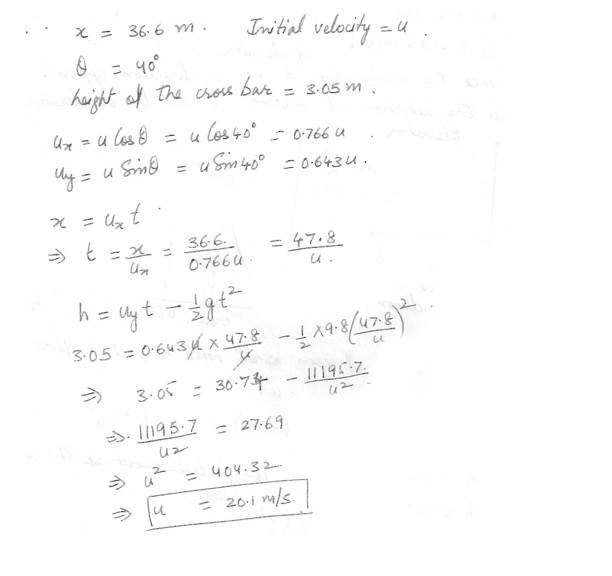 ∴ x = 36.6 m. Initial velocity = u.
θ = 40°
height of the cross bar = 3.05 m.
ux = u Cos θ = u Cos 40° = 0.766 u
uy = u Sin θ = u Sin 40° = 0.643 u.
x = ux t
⇒ t = x/ux = 36.6/0.766u = 47.8/u.
h = uy t − 1/2 gt²
3.05 = 0.643 u × 47.8/u − 1/2 × 9.8 (47.8/u)²
⇒ 3.05 = 30.74 − 11195.7/u²
⇒ 11195.7/u² = 27.69
⇒ u² = 404.32
⇒ u = 20.1 m/s.